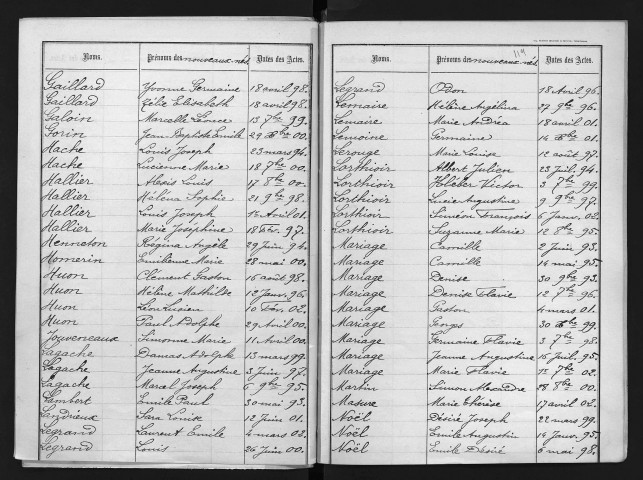 Noms. Prénoms des nouveaux-nés Dates des Actes.
Gaillard Yvonne Germaine 18 avril 98.
Gaillard Zélie Elisabeth 18 avril 98.
Galoin Marcelle Léonce 13 7bre 99.
Gorin Jean Baptiste Emile 29 Xbre 00.
Hache Louis Joseph 23 mars 94.
Hache Lucienne Marie 18 7bre 00.
Hallier Alexis Louis 17 8bre 00.
Hallier Héléna Sophie 21 9bre 98.
Hallier Louis Joseph Avril 01.
Hallier Marie Joséphine 18 Fév. 97.
Henneton Régina Angèle 29 Juin 94.
Homerin Emilienne Marie 28 mai 00.
Huon Clément Gaston 16 août 98.
Huon Hélène Mathilde 12 Janv. 96.
Huon Léon Lucien 10 Fév. 02.
Huon Paul Adolphe 29 Avril 00.
Jouveneaux Simonne Marie 11 Avril 00.
Lagache Damas Adolphe 15 mars 99.
Lagache Jeanne Augustine 3 Juin 97.
Lagache Marcel Joseph 9bre 95.
Lambert Emile Paul 30 mai 93.
Landrieux Sara Louise 12 Juin 01.
Legrand Laurent Emile 4 mars 02.
Legrand Louis 26 Juin 00.
119
Noms. Prénoms des nouveaux-nés Dates des Actes.
Legrand Odon 18 Avril 96.
Lemaire Hélène Angélina 27 9bre 96.
Lemaire Marie Andréa 18 avril 01.
Lemoine Germaine 14 Xbre 01.
Lerouge Marie Louise 12 août 97.
Lorthioir Albert Julien 23 Juil. 94.
Lorthioir Kléber Victor 3 7bre 99.
Lorthioir Lucie Augustine 9 9bre 97.
Lorthioir Siméon François 6 Janv. 02.
Lorthioir Suzanne Marie 12 8bre 95.
Mariage Camille 2 Juin 93.
Mariage Camille 14 mai 95.
Mariage Denise 30 9bre 93.
Mariage Denise Flavie 12 7bre 96.
Mariage Gaston 4 mars 01.
Mariage Georges 30 Xbre 99.
Mariage Germaine Flavie 3 7bre 98.
Mariage Jeanne Augustine 16 Juil. 95.
Mariage Marie Flavie 7bre 02.
Martin Simon Alexandre 28 8bre 00.
Masure Marie Thérèse 17 avril 02.
Noël Désiré Joseph 22 mars 99.
Noël Emile Augustin 14 Janv. 95.
Noël Emile Désiré 6 mai 98.